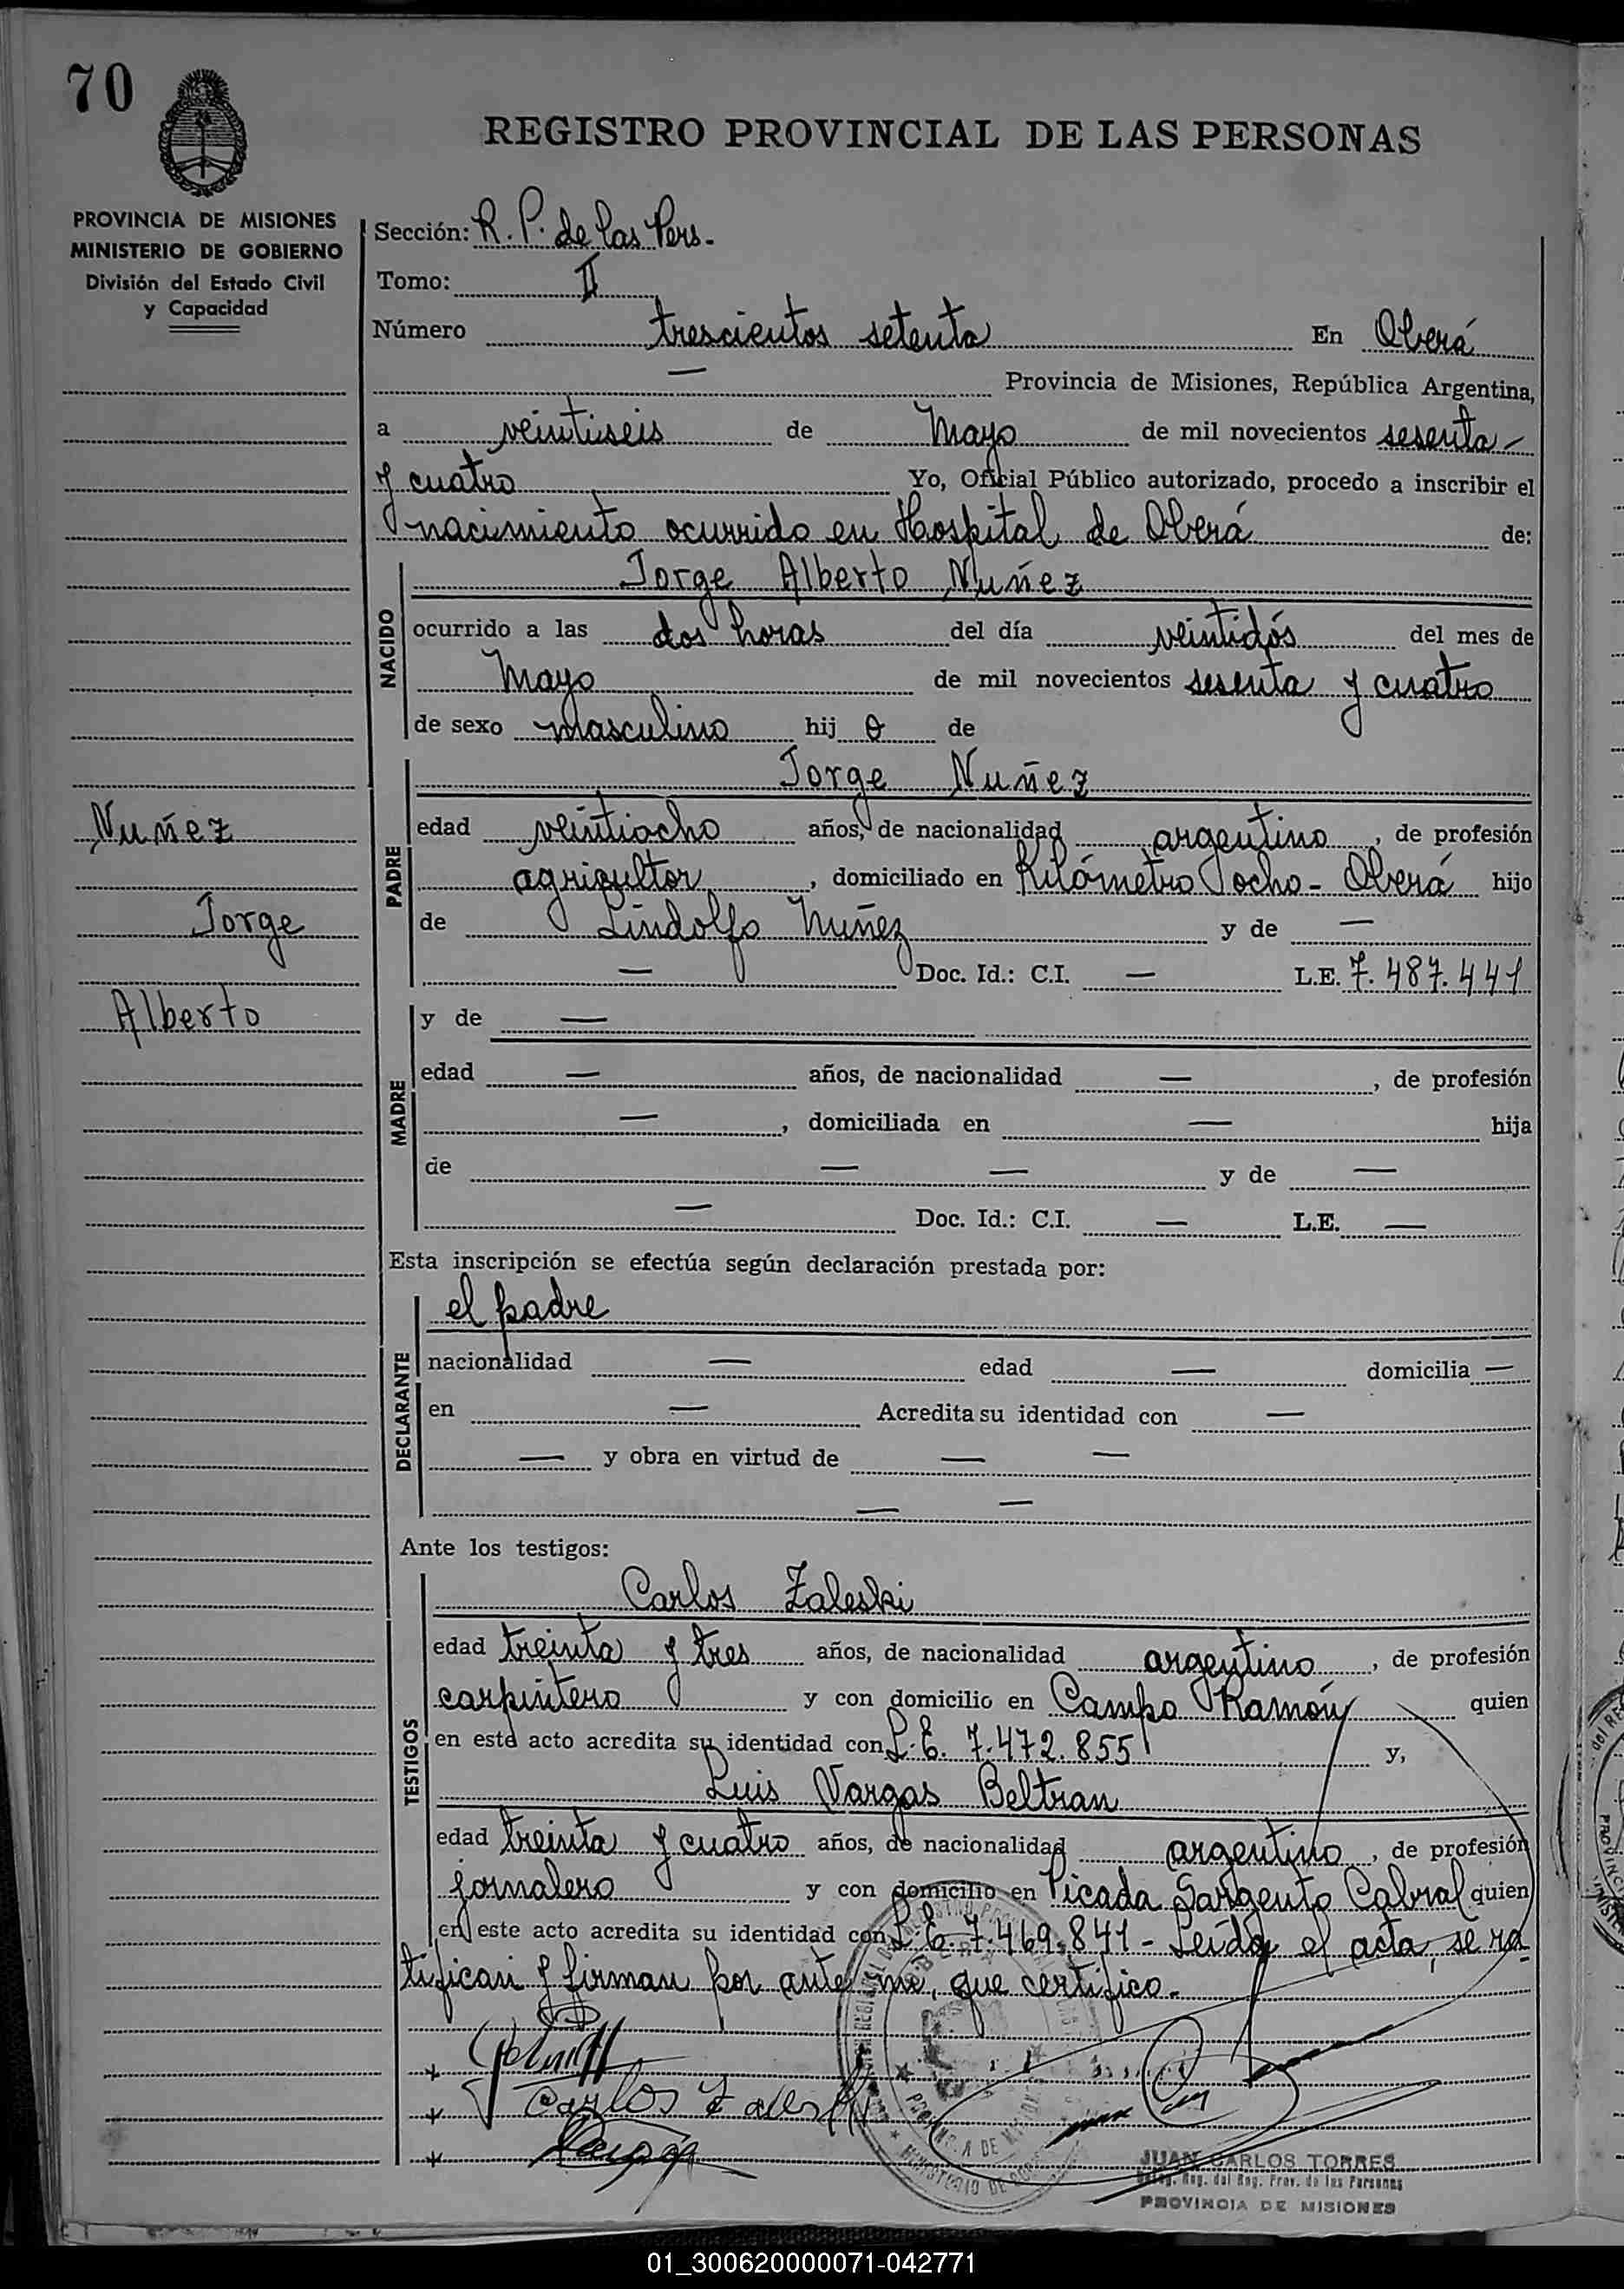 70
REGISTRO PROVINCIAL DE LAS PERSONAS
PROVINCIA DE MISIONES
MINISTERIO DE GOBIERNO
División del Estado Civil
y Capacidad
Sección: R. P. de las Pers.
Tomo: II
Número trescientos setenta En Oberá
— Provincia de Misiones, República Argentina,
a veintiseis de Mayo de mil novecientos sesenta
y cuatro Yo, Oficial Público autorizado, procedo a inscribir el
nacimiento ocurrido en Hospital de Oberá de:
NACIDO
Jorge Alberto Nuñez
ocurrido a las dos horas del día veintidós del mes de
Mayo de mil novecientos sesenta y cuatro
de sexo masculino hij o de
PADRE
Jorge Nuñez
Nuñez
edad veintiocho años, de nacionalidad argentino, de profesión
agricultor, domiciliado en Kilómetro ocho - Oberá hijo
Jorge
de Lindolfo Nuñez y de —
— Doc. Id.: C.I. — L.E. 7.487.441
Alberto
MADRE
y de —
edad — años, de nacionalidad —, de profesión
—, domiciliada en — hija
de — — y de —
— Doc. Id.: C.I. — L.E. —
Esta inscripción se efectúa según declaración prestada por:
DECLARANTE
el padre
nacionalidad — edad — domicilia —
en — Acredita su identidad con —
— y obra en virtud de — —
— —
Ante los testigos:
TESTIGOS
Carlos Zaleski
edad treinta y tres años, de nacionalidad argentino, de profesión
carpintero y con domicilio en Campo Ramón quien
en este acto acredita su identidad con L.E. 7.472.855 y,
Luis Vargas Beltran
edad treinta y cuatro años, de nacionalidad argentino, de profesión
jornalero y con domicilio en Picada Sargento Cabral quien
en este acto acredita su identidad con L.E. 7.469.841 - Leída el acta, se ra
tifican y firman por ante mí, que certifico.
Carlos Zaleski
JUAN CARLOS TORRES
Reg. del Reg. Prov. de las Personas
PROVINCIA DE MISIONES
01_300620000071-042771